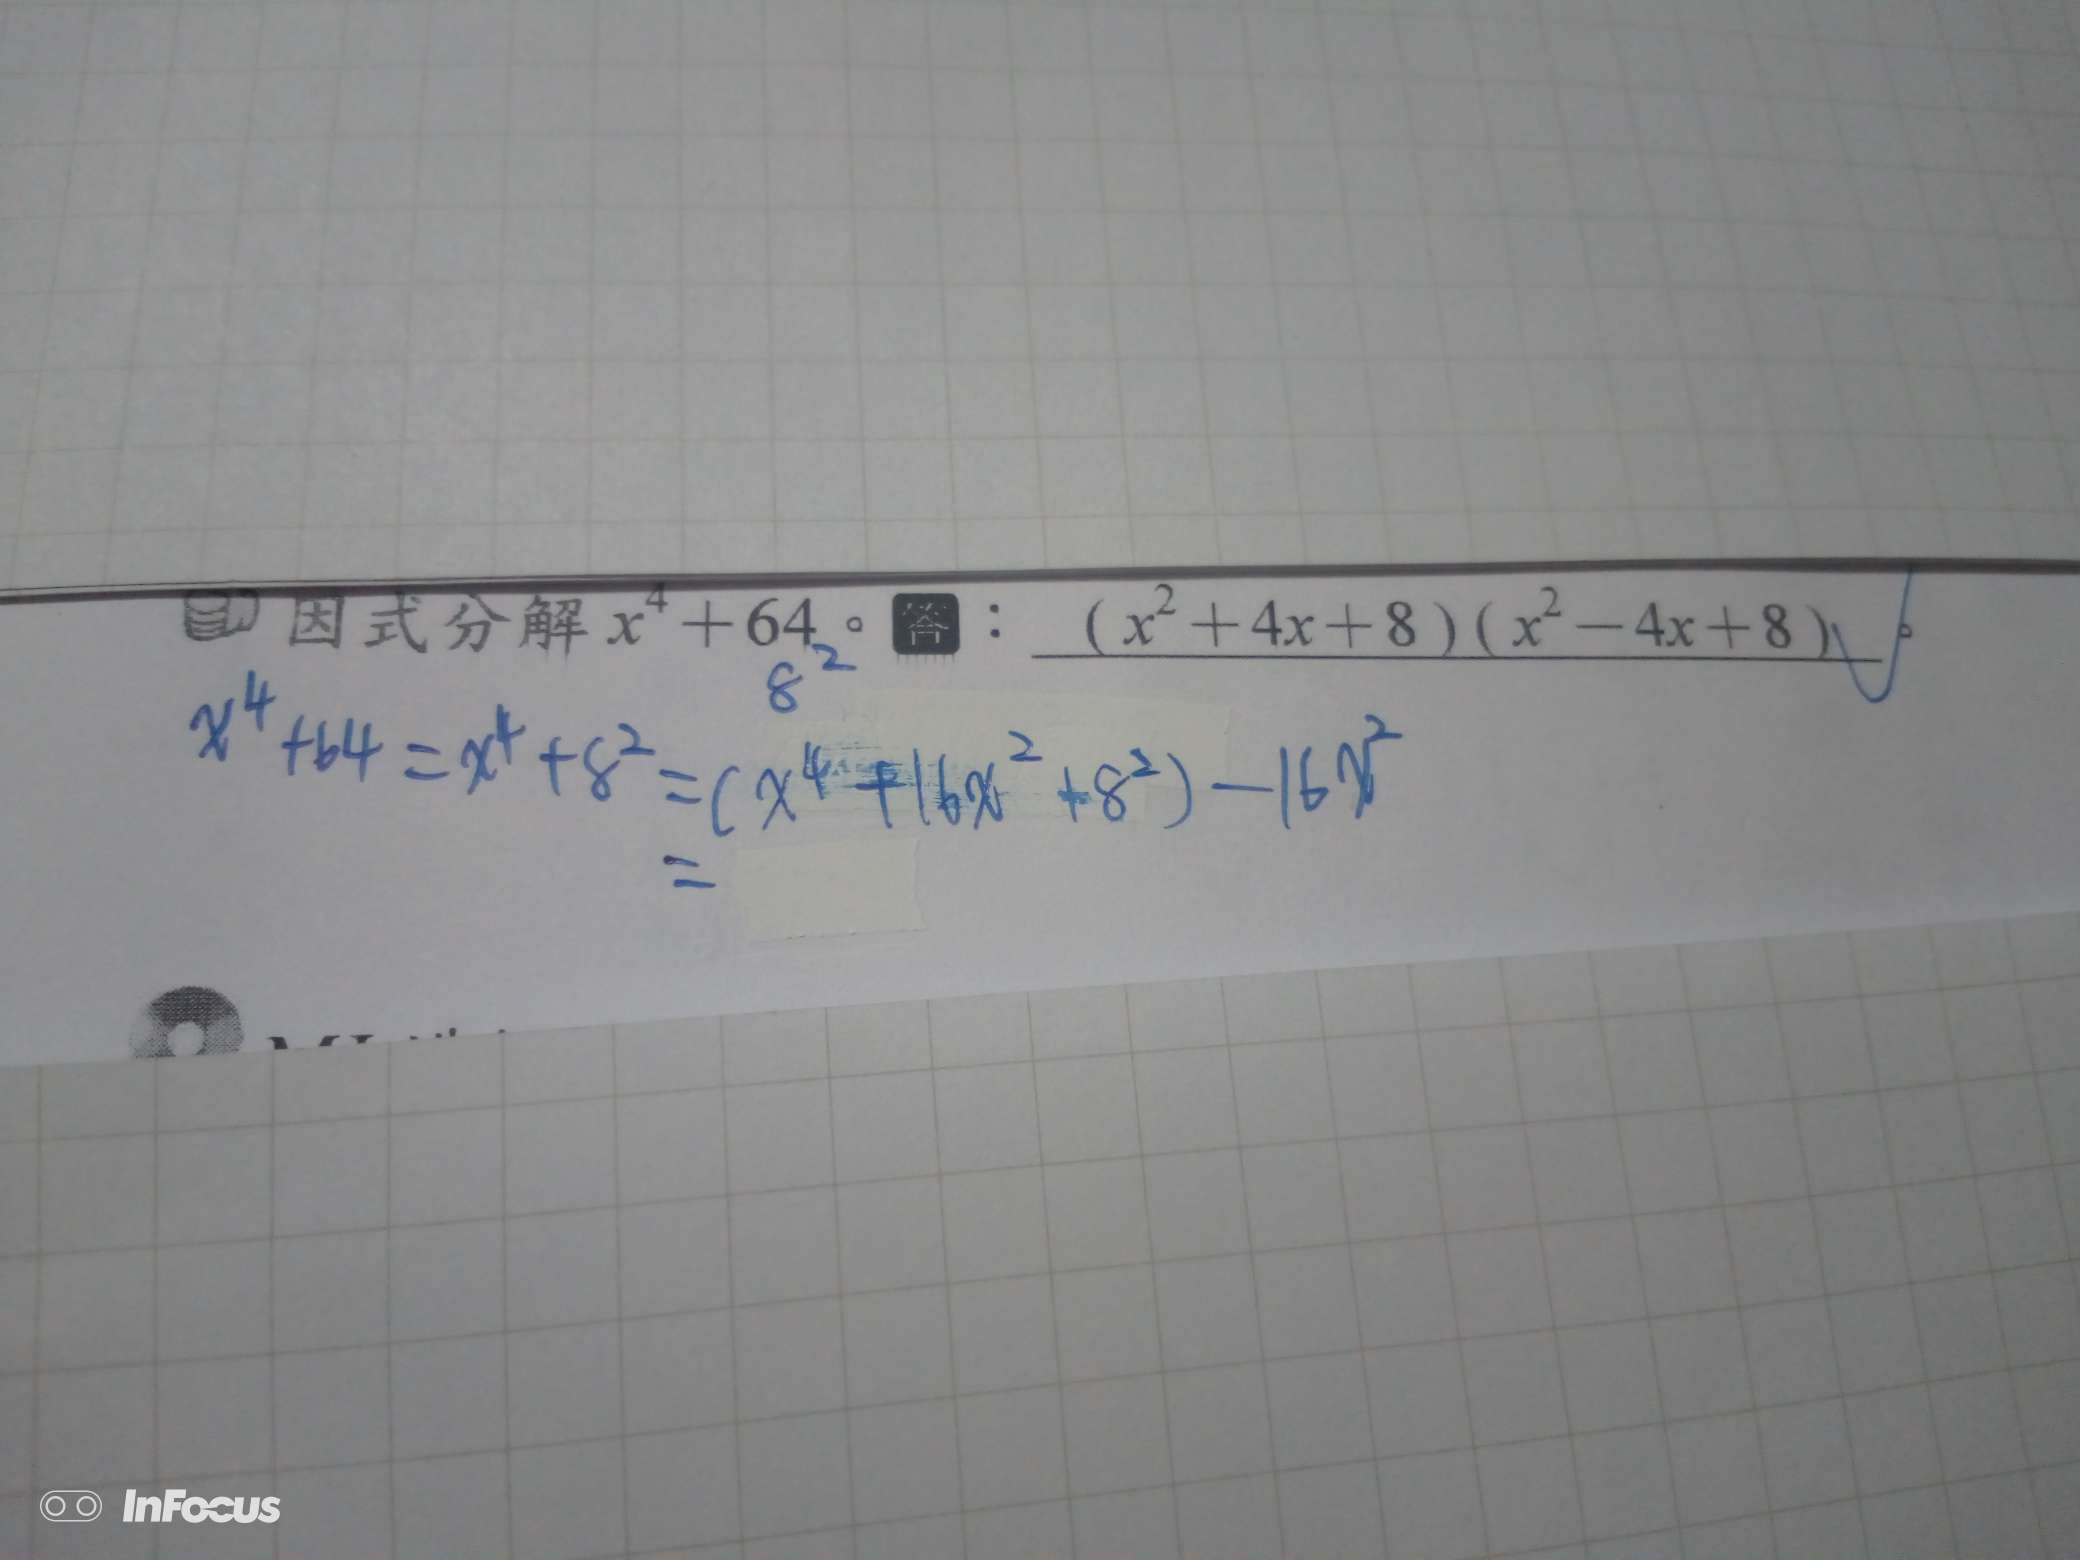 因式分解 x⁴+64。答：(x²+4x+8)(x²-4x+8)。
8²
x⁴+64=x⁴+8²=(x⁴+16x²+8²)-16x²
=
InFocus